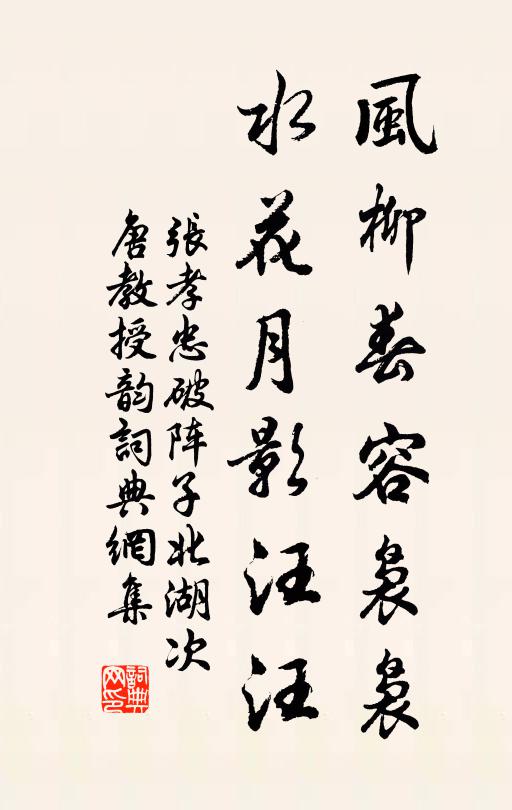 風柳春容裊裊
水花月影汪汪
張孝忠破阵子北湖次
唐教授韵詞典網集
詞典网印